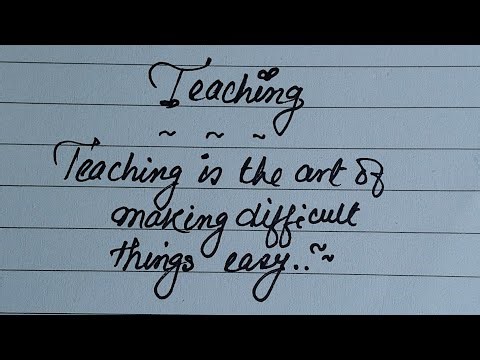 Teaching
~ ~ ~
Teaching is the art of
making difficult
things easy..~~